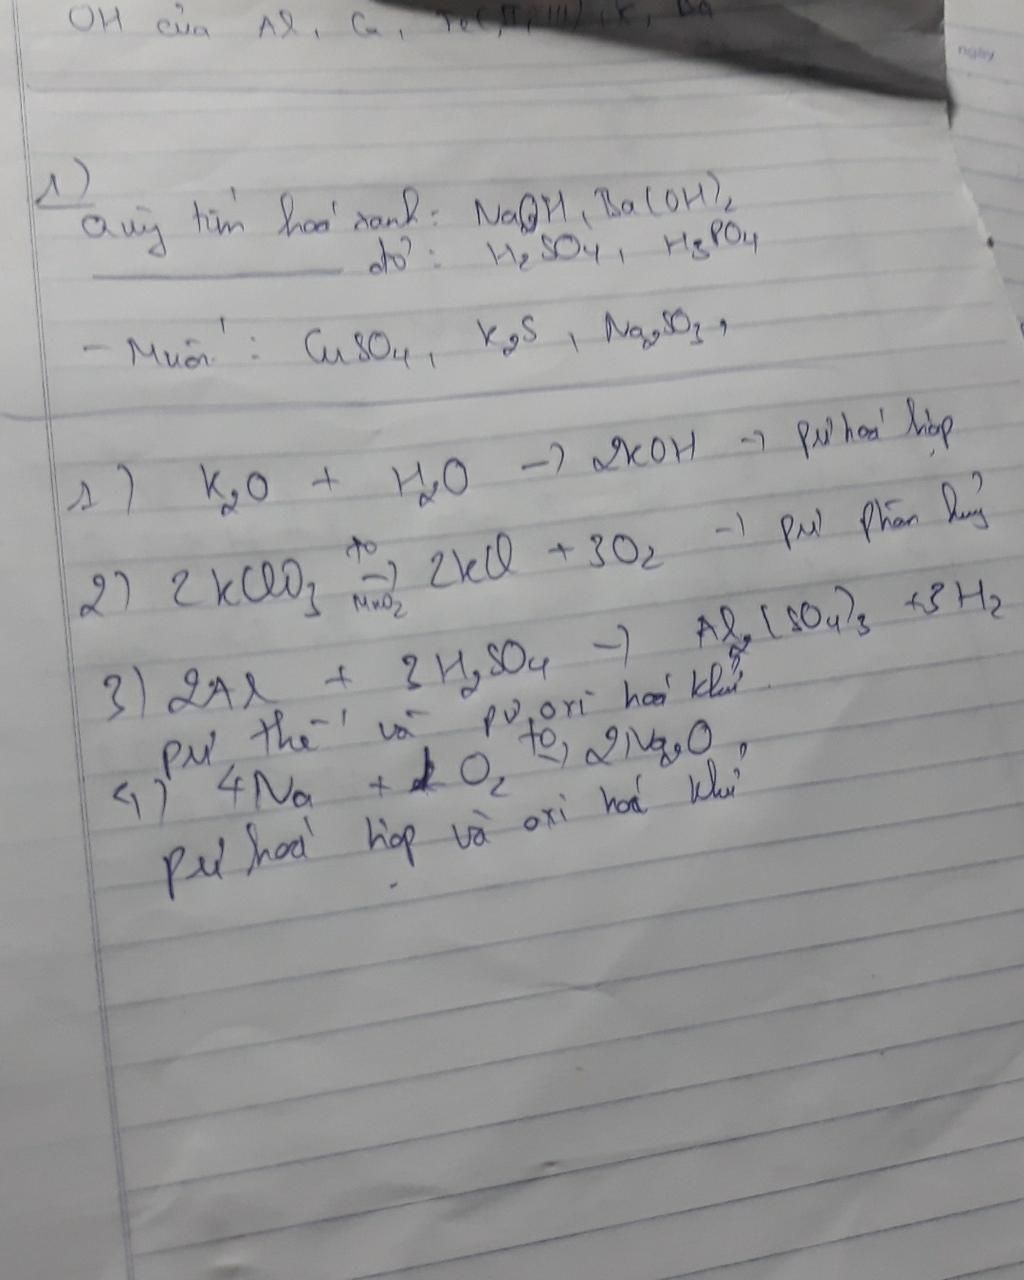 OH của Al, Ca, Fe(II, III), K, Ba
ngày
1)
Quỳ tím hoá xanh: NaOH, Ba(OH)₂
đỏ: H₂SO₄, H₃PO₄
- Muối: CuSO₄, K₂S, Na₂SO₃,
1) K₂O + H₂O → 2KOH → pư hoá hợp
2) 2KClO₃ →(t⁰, MnO₂) 2KCl + 3O₂ → pư phân huỷ
3) 2Al + 3H₂SO₄ → Al₂(SO₄)₃ + 3H₂
pư thế và pư oxi hoá khử
4) 4Na + O₂ →(t⁰) 2Na₂O,
pư hoá hợp và oxi hoá khử